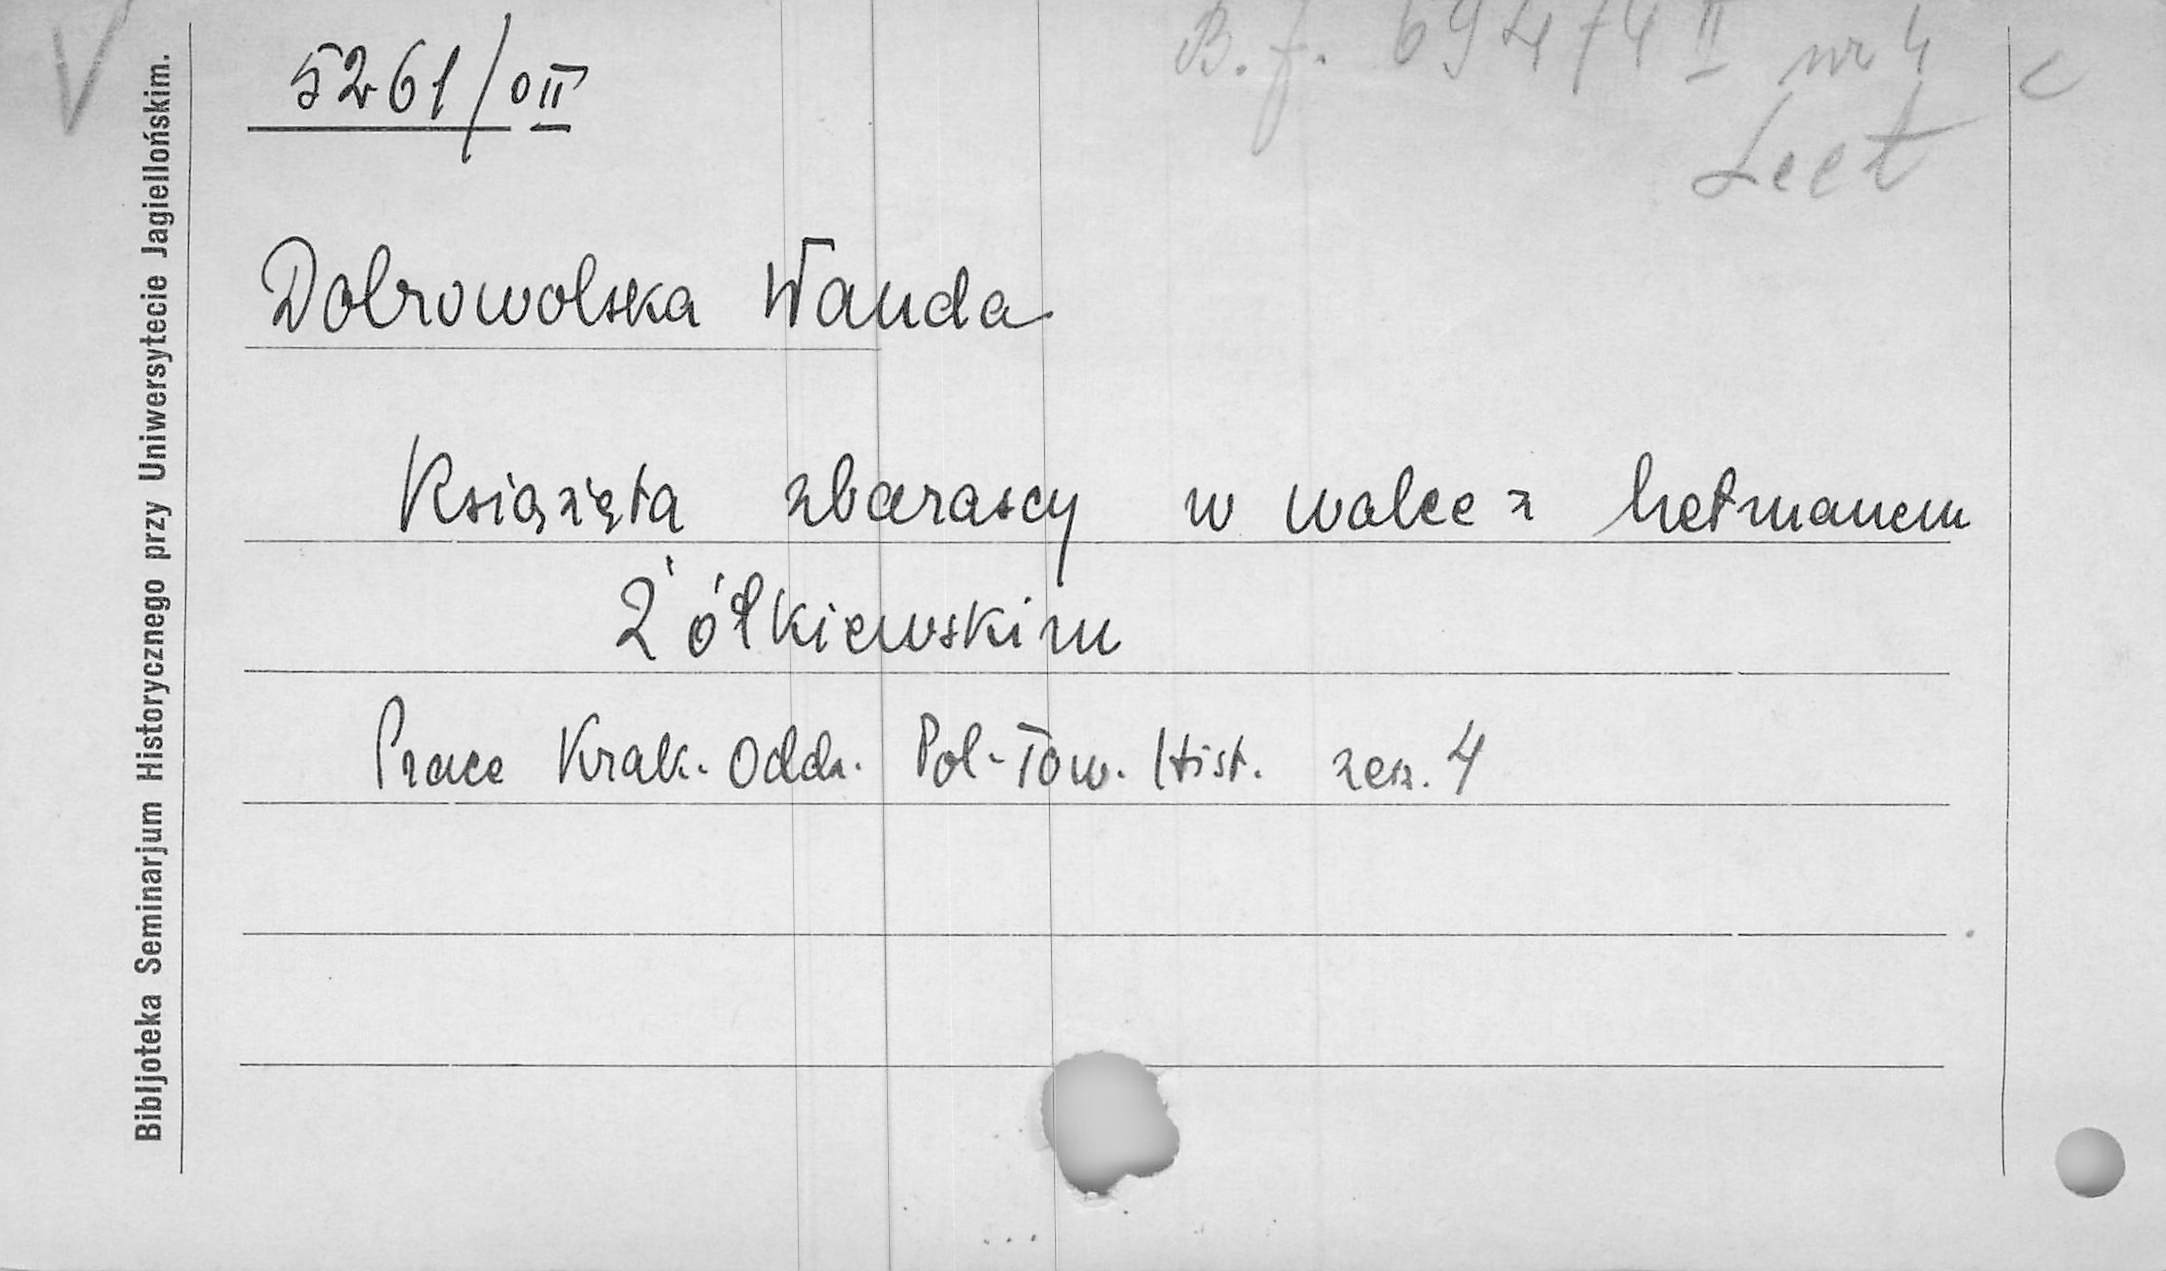 V
B. f. 69474 II nr 4 c
5261/OII
Dobrowolska Wanda
Książęta zbarascy w walce z hetmanem
Żółkiewskim
Prace Krak. Oddz. Pol. Tow. Hist. zesz. 4
Bibljoteka Seminarjum Historycznego przy Uniwersytecie Jagiellońskim.